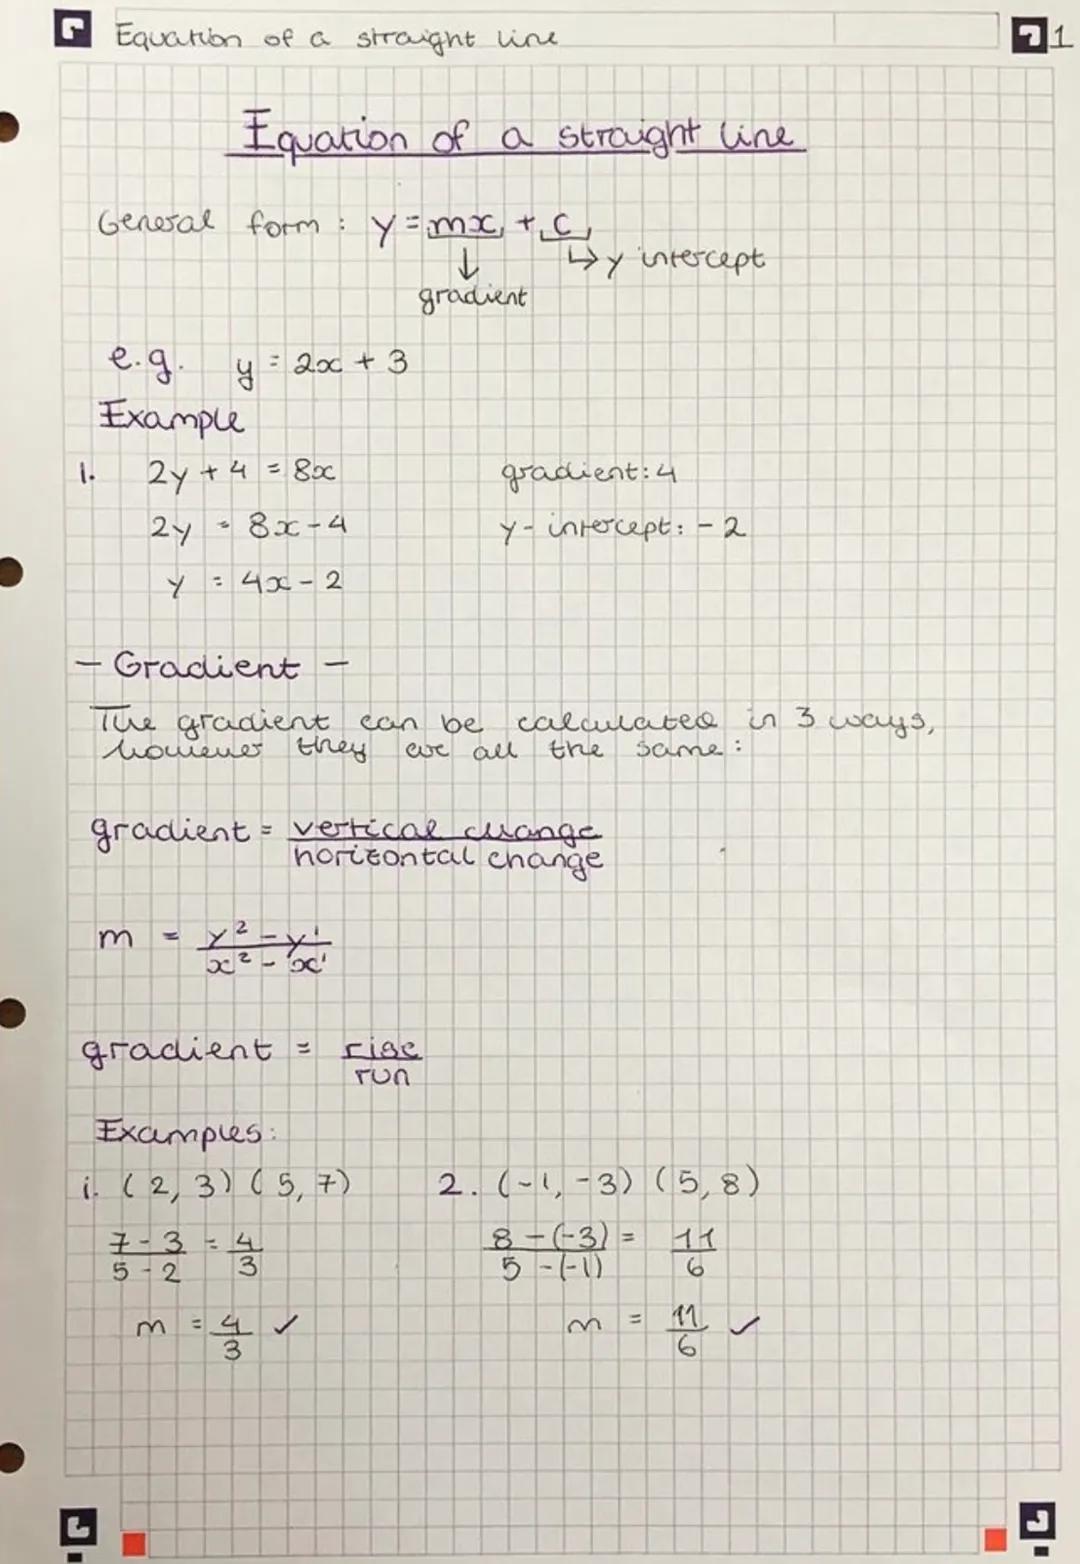 Equation of a straight line 1
Equation of a straight line
General form : y = mx + c
↳ y intercept
↓
gradient
e.g. y = 2x + 3
Example
1. 2y + 4 = 8x gradient: 4
2y = 8x - 4 y-intercept: - 2
y = 4x - 2
- Gradient -
The gradient can be calculated in 3 ways,
however they are all the same :
gradient = vertical change
horizontal change
m = y² - y¹
x² - x¹
gradient = rise
run
Examples:
1. (2, 3) (5, 7) 2. (-1, -3) (5, 8)
7 - 3 = 4 8 - (-3) = 11
5 - 2 3 5 - (-1) 6
m = 4 ✓ m = 11 ✓
3 6